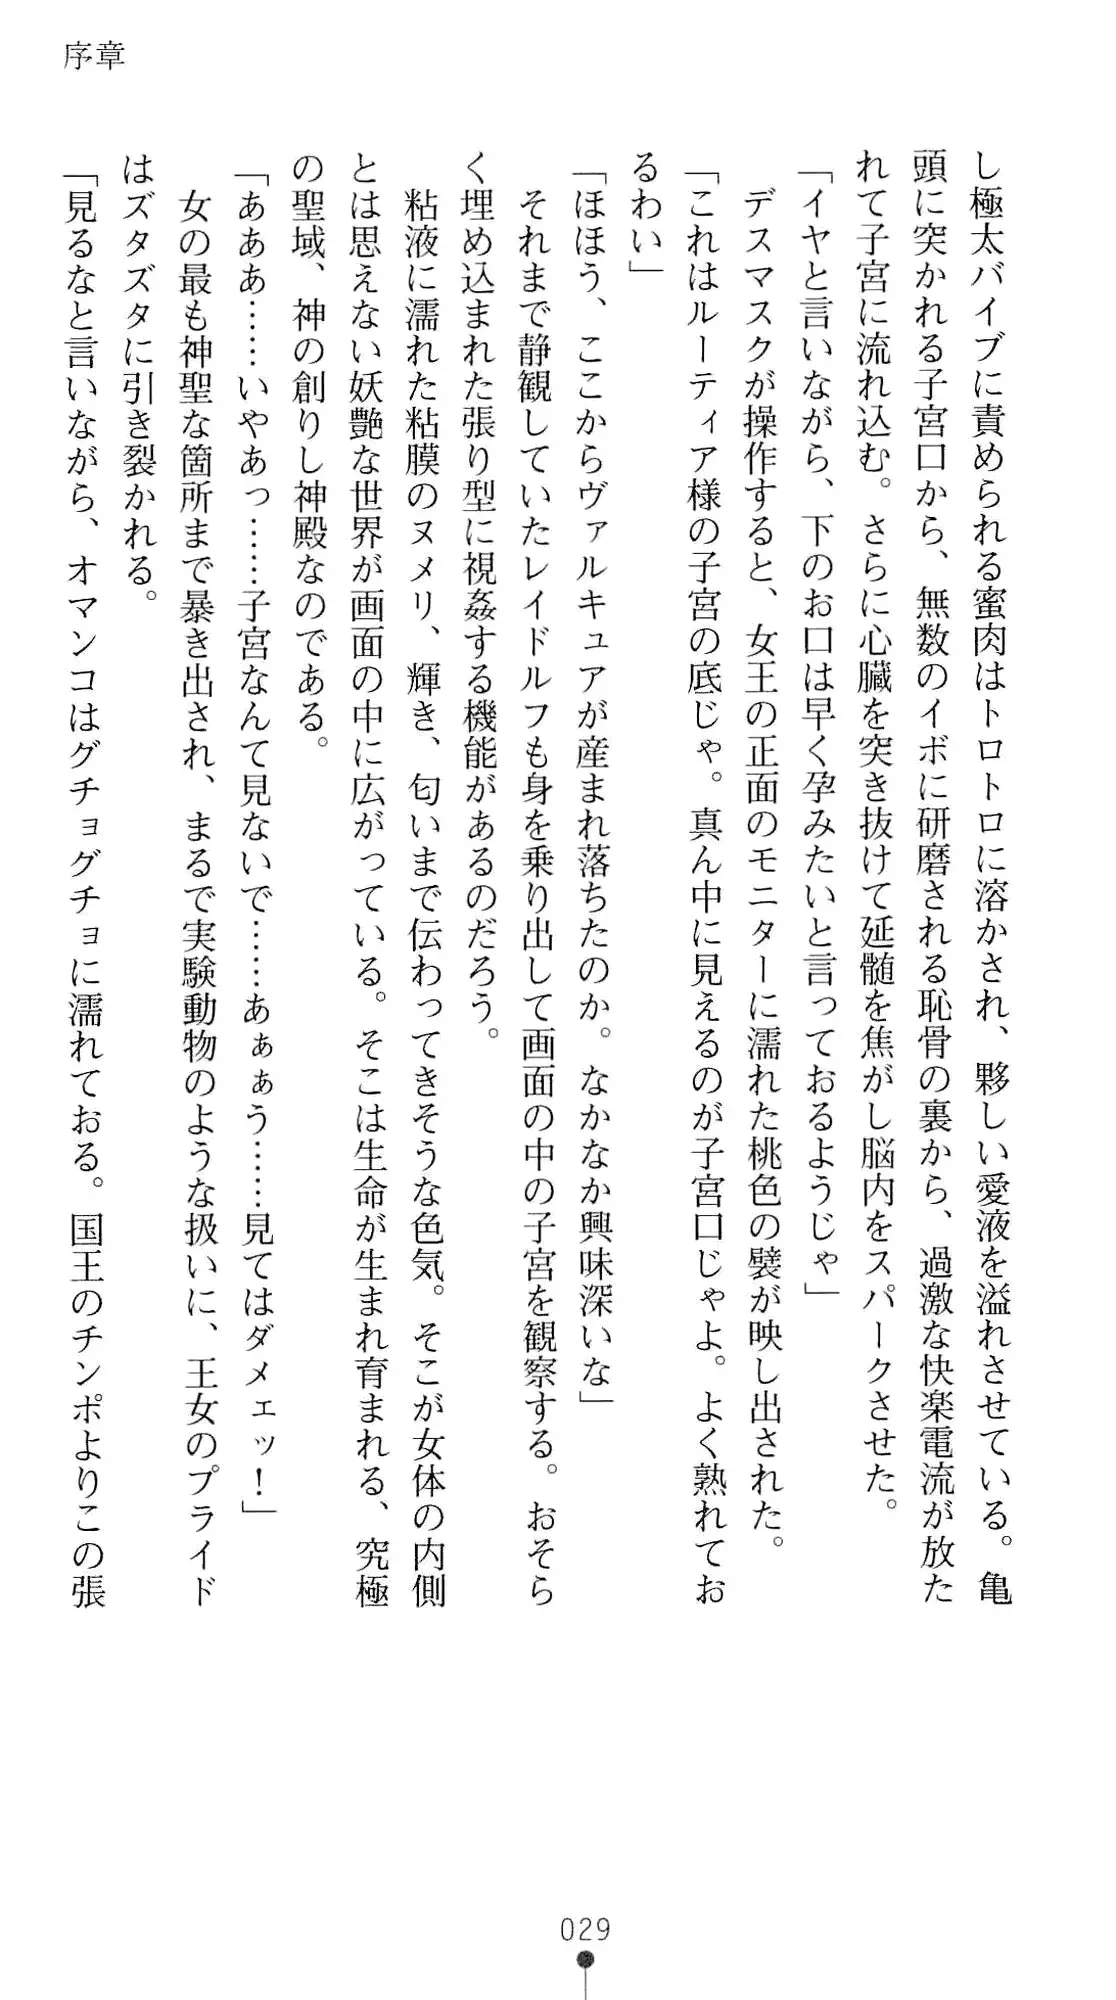 序章
し極太バイブに責められる蜜肉はトロトロに溶かされ、夥しい愛液を溢れさせている。亀
頭に突かれる子宮口から、無数のイボに研磨される恥骨の裏から、過激な快楽電流が放た
れて子宮に流れ込む。さらに心臓を突き抜けて延髄を焦がし脳内をスパークさせた。
「イヤと言いながら、下のお口は早く孕みたいと言っておるようじゃ」
デスマスクが操作すると、女王の正面のモニターに濡れた桃色の襞が映し出された。
「これはルーティア様の子宮の底じゃ。真ん中に見えるのが子宮口じゃよ。よく熟れてお
るわい」
「ほほう、ここからヴァルキュアが産まれ落ちたのか。なかなか興味深いな」
それまで静観していたレイドルフも身を乗り出して画面の中の子宮を観察する。おそら
く埋め込まれた張り型に視姦する機能があるのだろう。
粘液に濡れた粘膜のヌメリ、輝き、匂いまで伝わってきそうな色気。そこが女体の内側
とは思えない妖艶な世界が画面の中に広がっている。そこは生命が生まれ育まれる、究極
の聖域、神の創りし神殿なのである。
「あああ……いやあっ……子宮なんて見ないで……あぁぁう……見てはダメェッ！」
女の最も神聖な箇所まで暴き出され、まるで実験動物のような扱いに、王女のプライド
はズタズタに引き裂かれる。
「見るなと言いながら、オマンコはグチョグチョに濡れておる。国王のチンポよりこの張
029